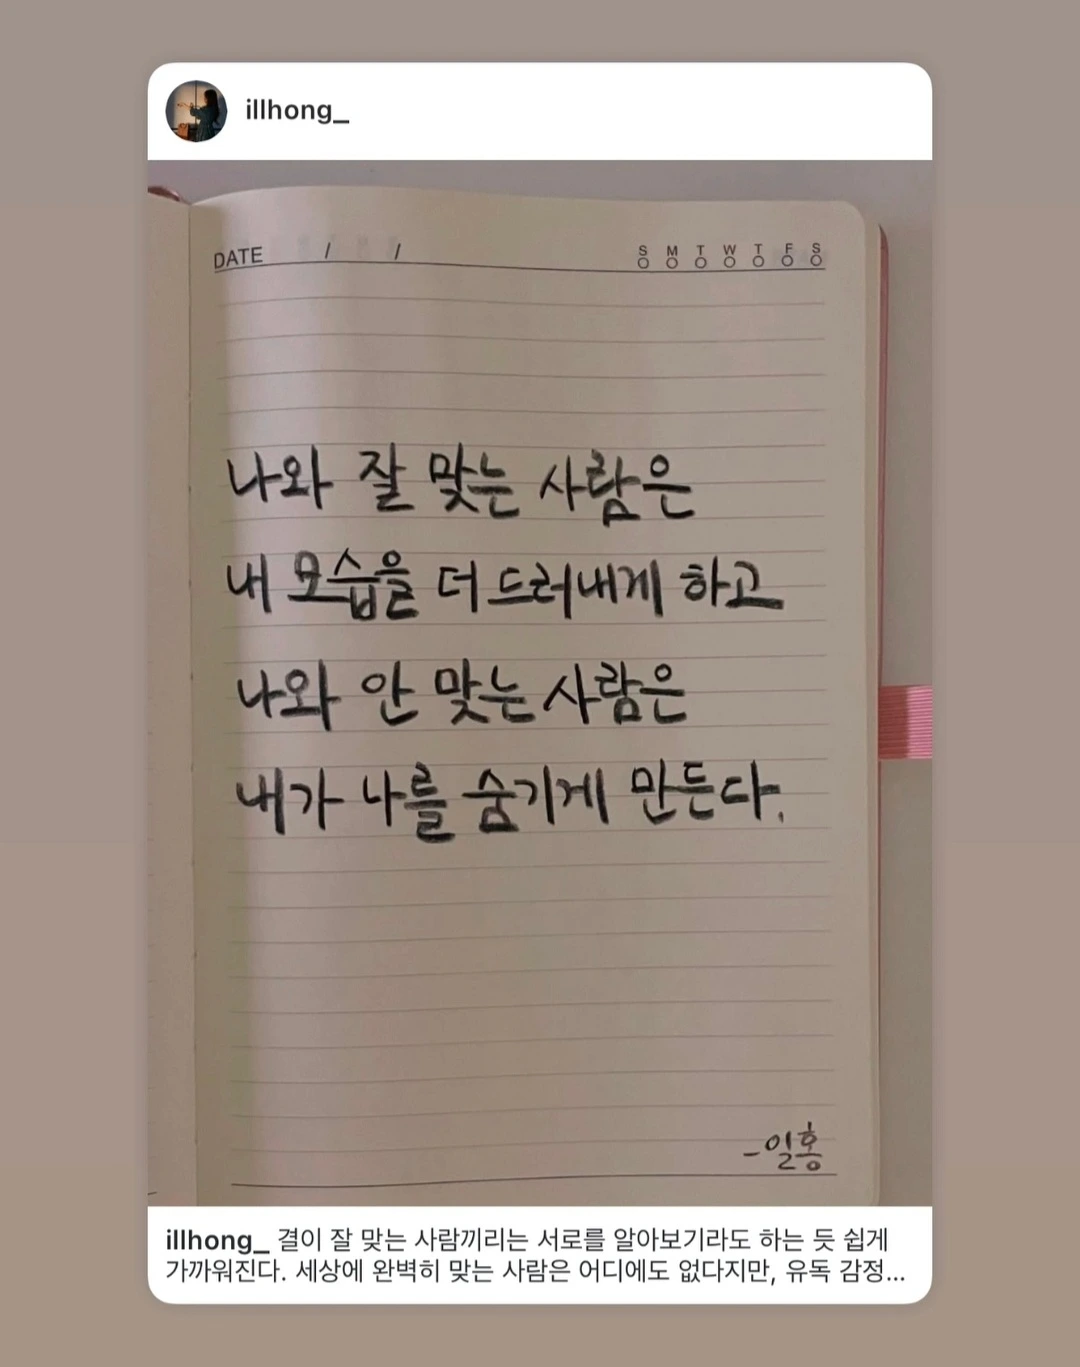 illhong_
DATE / /
S M T W T F S
나와 잘 맞는 사람은
내 모습을 더 드러내게 하고
나와 안 맞는 사람은
내가 나를 숨기게 만든다.
-일홍
illhong_ 결이 잘 맞는 사람끼리는 서로를 알아보기라도 하는 듯 쉽게
가까워진다. 세상에 완벽히 맞는 사람은 어디에도 없다지만, 유독 감정...